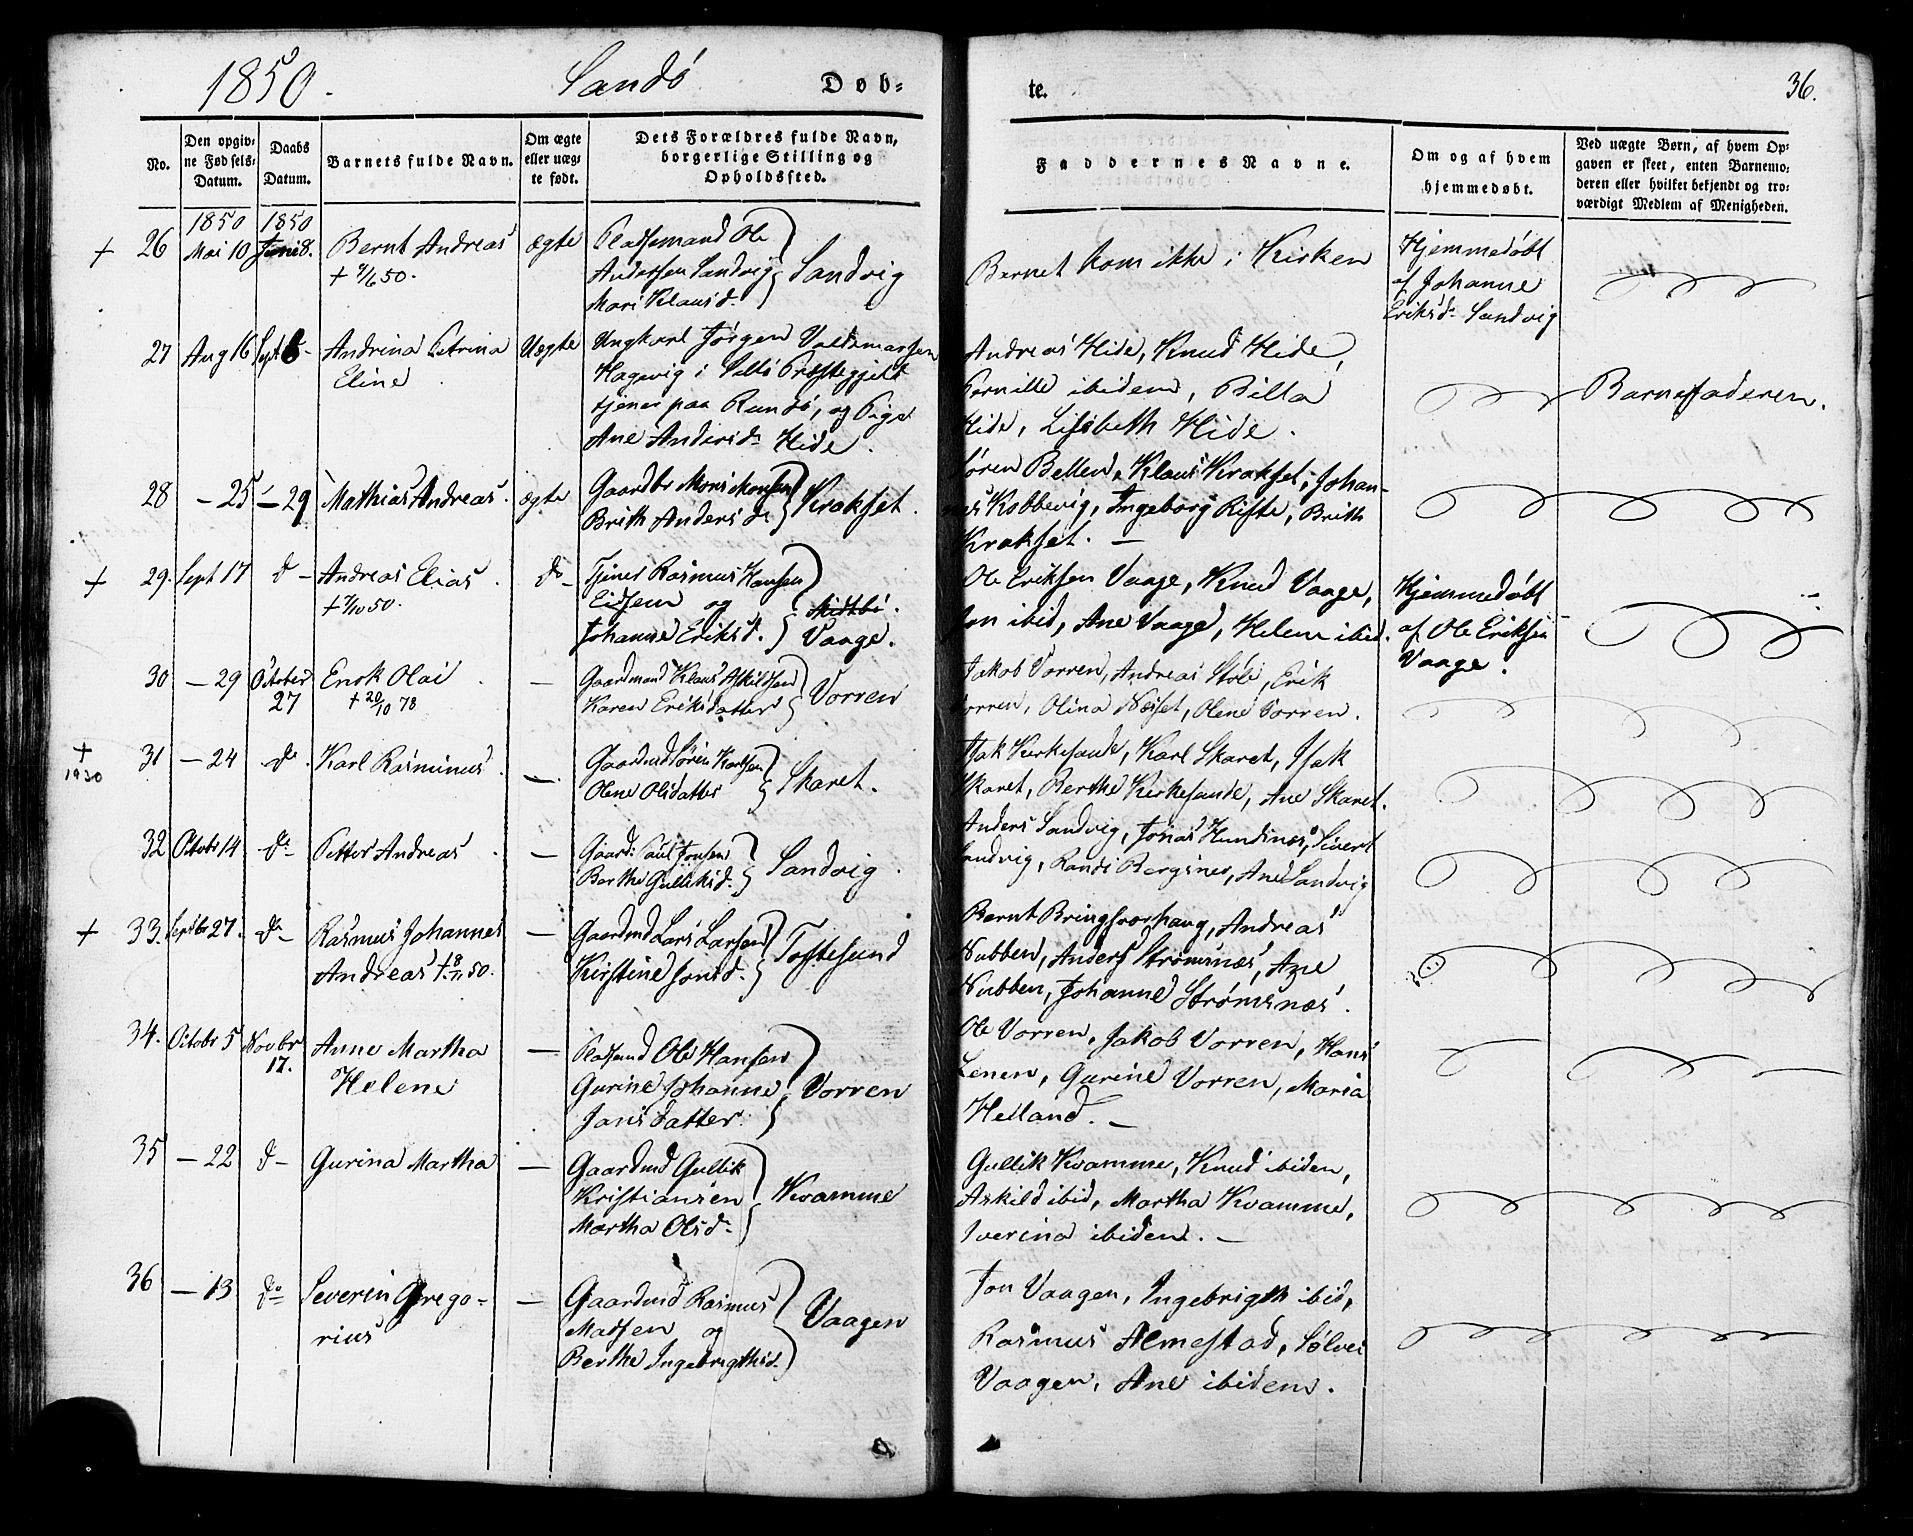 1850.
Sandö
Døb-
te.
36.
No.
Den opgiv-
ne Fødsels-
Datum.
Daabs
Datum.
Barnets fulde Navn.
Om ægte
eller uæg-
te født.
Dets Forældres fulde Navn,
borgerlige Stilling og
Opholdssted.
Faddernes Navne.
Om og af hvem
hjemmedøbt.
Ved uægte Børn, af hvem Op-
gaven er skeet, enten Barnemo-
deren eller hvilket bekjendt og tro-
værdigt Medlem af Menigheden.
1850 1850
+ 26 Mai 10 Juni 8. Bernt Andreas ægte Pladsemand Ole
+ 9/6 50. Andersen Sandvig Sandvig
Mari Klausd.
Barnet kom ikke i Kirken
Hjemmedøbt
af Johanne
Eriksd. Sandvig
27 Aug 16 Sept 8 - Andrina Petrina Uægte Ungkarl Jørgen Valdemarsen
Eline Hagevig i Præstegjeld
tjener paa Rundö, og Pige
Ane Andersd. Hide.
Andreas Hide, Knud Hide,
Pernille ibidem,
Hide, Lisbeth Hide.
Barnefaderen.
28 - 25 - 29 Mathias Andreas. ægte Gaardbr Mons Monsen Krokset.
Brith Andersd.
Søren Bellen, Klaus Krakset, Johan-
nes Kobbevig, Ingeborg Riste, Brith
Krakset. -
+ 29. Sept 17 d - Andreas Elias. do - Tjener Rasmus Hansen
+ 7/10 50. Eidsem og
Johanne Eriksd. Vaage.
Ole Eriksen Vaage, Knud Vaage,
Jon ibid, Ane Vaage, Helene ibid.
Hjemmedøbt
af Ole Eriksen
Vaage.
30 - 29 October Enok Olai - Gaardmand Klaus Askildsen Vorren
27 + 20/10 78 Karen Eriksdatter
Jakob Vorren, Andreas Støle, Erik
Vorren, Olina Næsset, Olene Vorren.
+
1930
31 - 24 do. Karl Rasmus. - Gaardmd Søren Karlsen Skaret.
Olene Olsdatter
Isak Kirkesande, Karl Skaret, Isak
Skaret, Berthe Kirkesande, Ane Skaret.
32 Octobr 14 do - Petter Andreas. - Gaard. Paul Jonsen Sandvig.
Berthe Gulliksd.
Anders Sandvig, Jonas Hundsnæs, Sivert
Sandvig, Randi Bergsnes, Ane Sandvig
+ 33. Septbr 27. do - Rasmus Johannes - Gaardmd Lars Larsen Toftesund
Andreas + 8/11 50. Kirstine Jonsd.
Bernt Bringsvorhaug, Andreas
Nubben, Anders Strømsnæs, Ane
Nubben, Johanne Strømsnæs.
34. Octobr 5 Novbr Anne Martha - Pladsmd Ole Hansen
17. Helene Gurine Johanne Vorren
Jonsdatter.
Ole Vorren, Jakob Vorren, Hans
Lenen, Gurine Vorren, Maria
Helland. -
35 - 22 d - Gurina Martha - Gaardmd Gullik
Kristiansen Kvamme
Martha Olsd.
Gullik Kvamme, Knud ibiden,
Askild ibid, Martha Kvamme,
Iverina ibiden. -
36 - 13 do Severin Grego- - Gaardmd Rasmus
rius Madsen og Vaagen
Berthe Ingebrigthsd.
Jon Vaagen, Ingebrigth ibid,
Rasmus Almestad, Sølvei
Vaagen, Ane ibidem.